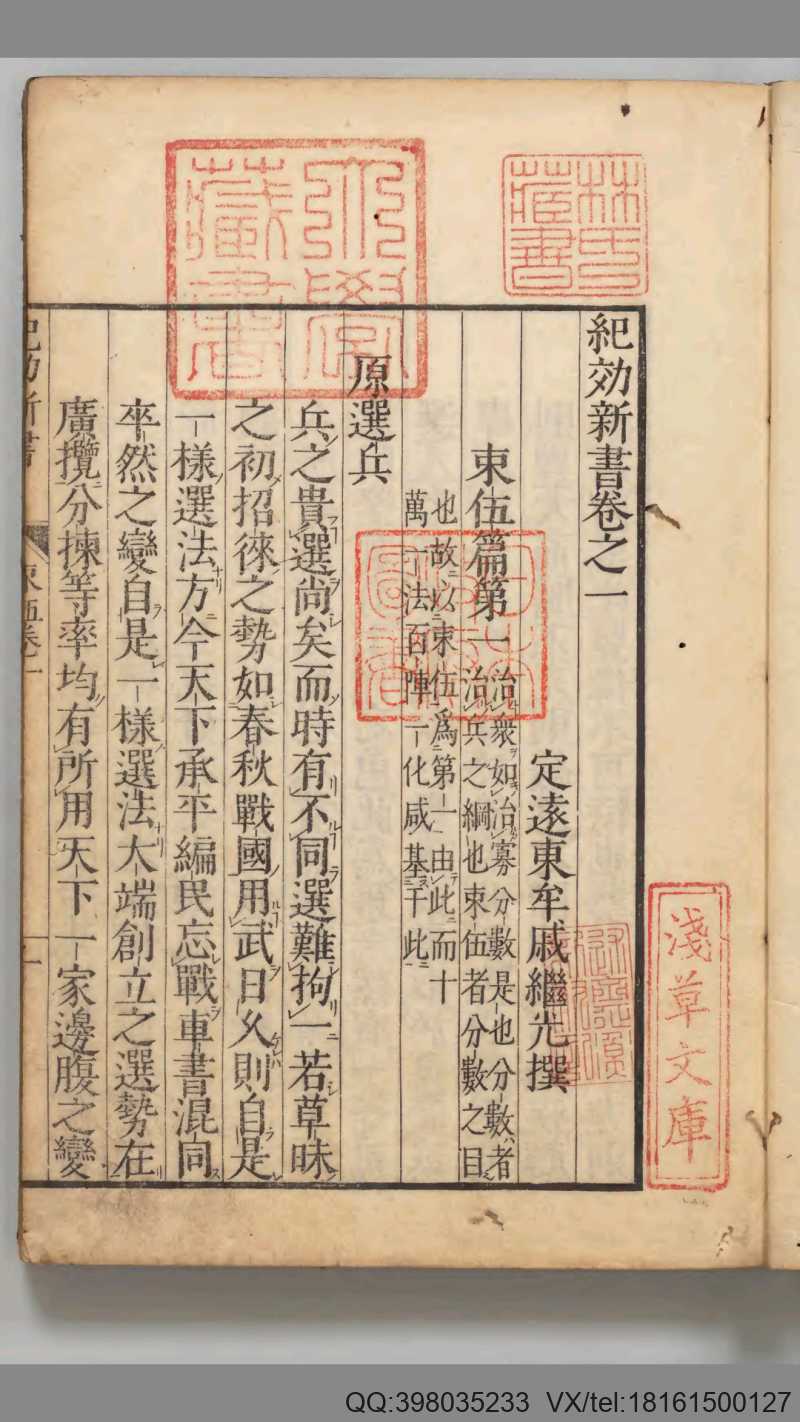 紀効新書卷之一
定遠東牟戚繼光撰
束伍篇第一
治衆如治寡分數是也分數者
治兵之綱也束伍者分數之目
也故以束伍爲第一由此而十
萬一法百陣一化咸基于此
原選兵
兵之貴選尚矣而時有不同選難拘一若草昧
之初招徠之勢如春秋戰國用武日久則自是
一樣選法方今天下承平編民忘戰車書混同
卒然之變自是一樣選法大端創立之選勢在
廣攬分揀等率均有所用天下一家邊腹之變
林氏藏書
淺草文庫
QQ:398035233 VX/tel:18161500127